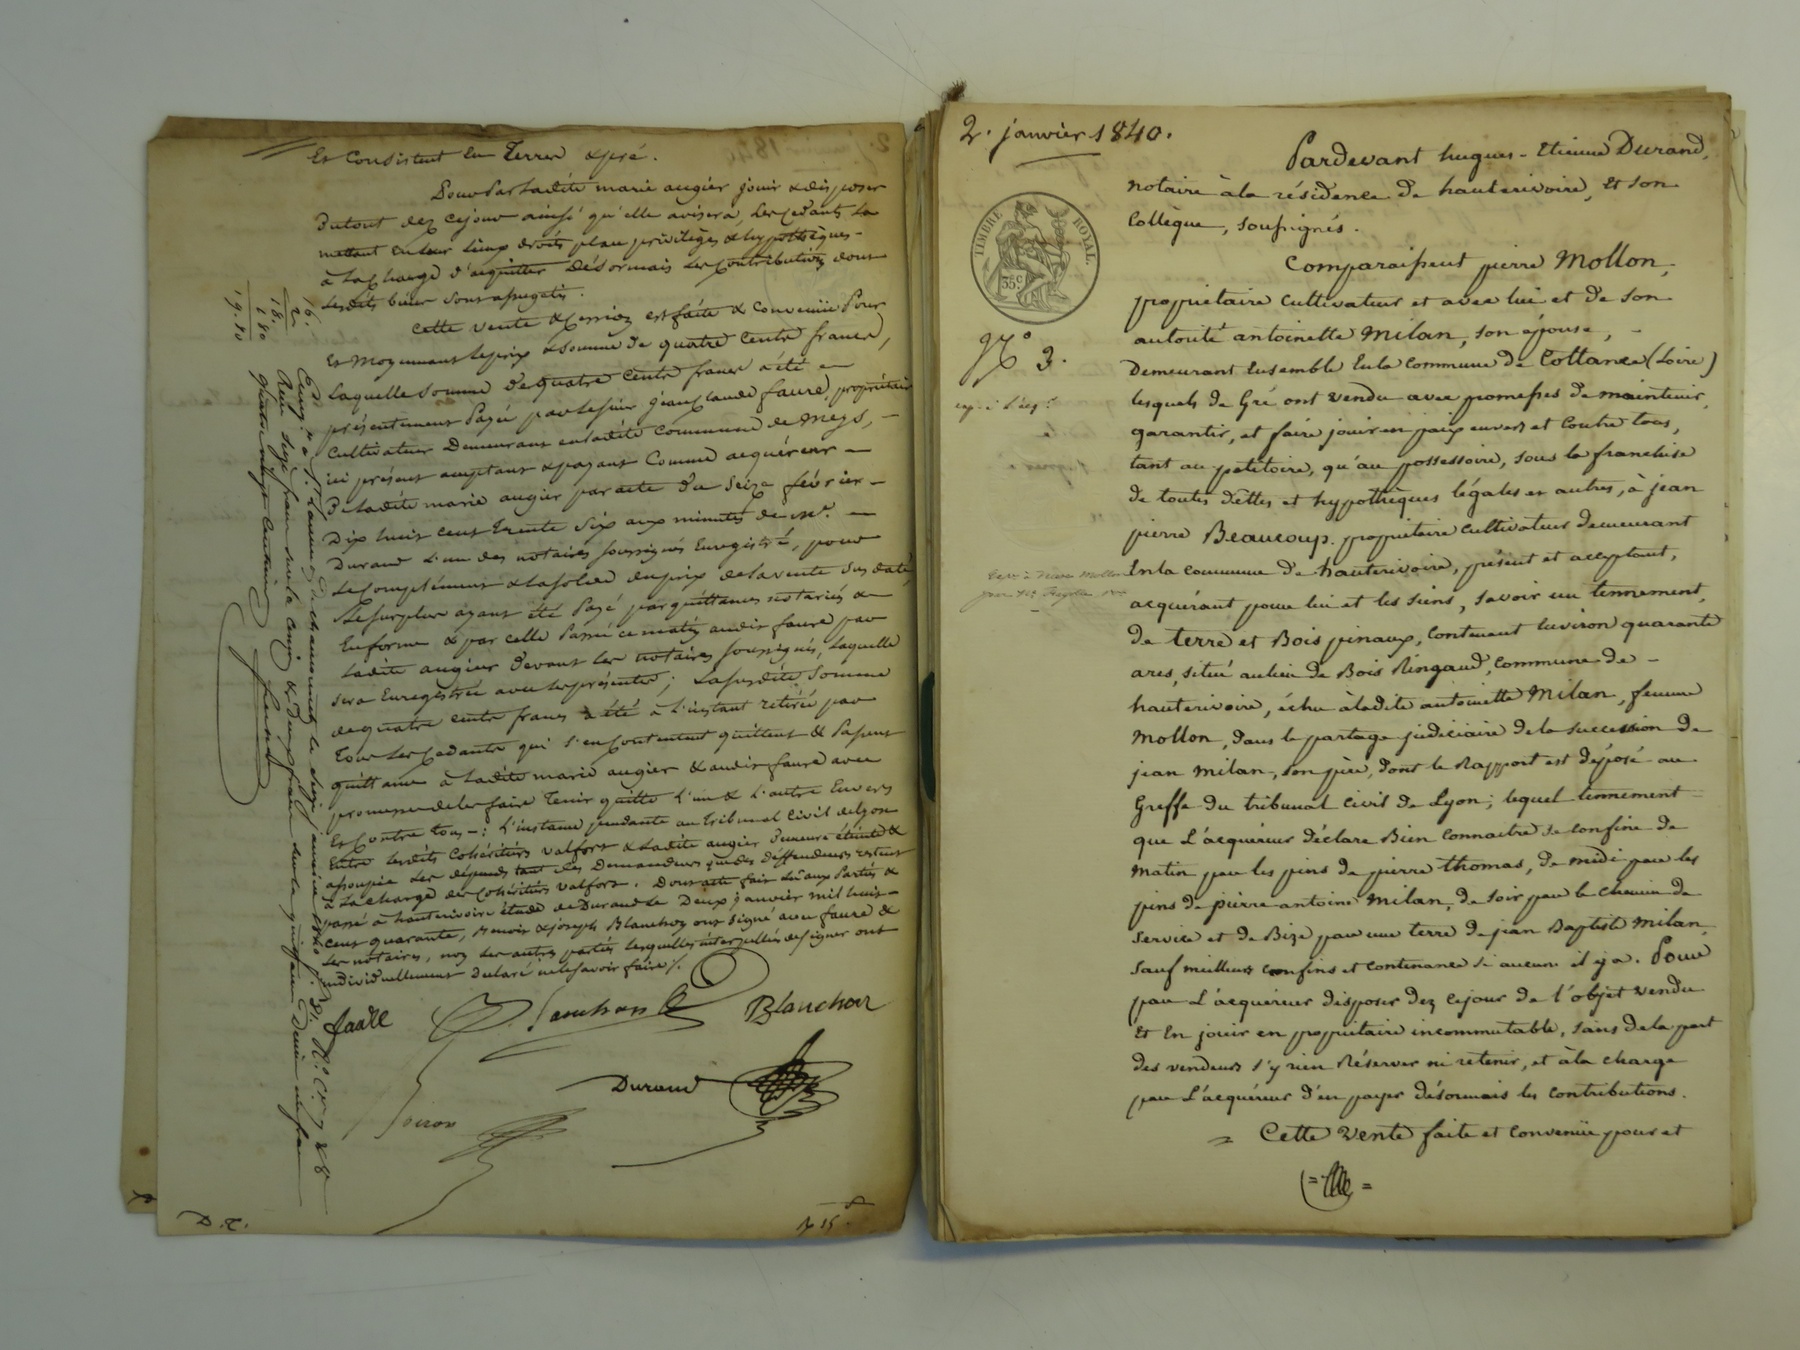 Et Consistent En Terres & pré.
Pour Par Ladite marie augier jouir & disposer
Dutout dez cejour ainsi qu'elle avisera Les Cedants La
mettant en Leur Lieux droits place privilèges & hypothèques -
à La Charge d'acquitter Désormais Les Contributions dont
Lesdits biens Sont assujetis.
Cette vente & Cession est faite & Convenüe Pour
Et Moyennant Le prix & Somme De quatre Cents francs,
Laquelle Somme de quatre Cents francs a été -
présentement Payé par Le Sieur Jean Claude faure, propriétaire
Cultivateur Demeurant en Ladite Commune de Meys, -
ici présent acceptant & payant Comme acquéreur -
De Ladite marie augier par acte du Seize février -
Dix huit cent trente Six aux minutes de Me. -
Durand L'un des notaires soussignés Enregistré, pour
Le Complément & La Solde du prix de La vente Sus datée,
Le Surplus ayant été Payé par quittances notariés &
En forme & par celle Passé ce matin audit faure par
Ladite augier devant Les notaires soussignés, Laquelle
Sera Enregistrée avec Les présentes ; La Susdite Somme
de quatre cents francs a été à L'instant retirée par
Tous Les Cedants qui S'en Contentent quittent & Passent
quittance à Ladite marie augier & audit faure avec
promesse de Les faire Tenir quitte L'un & L'autre Envers
Et Contre tous - ; L'instance pendante au Tribunal Civil de Lyon
Entre Lesdits Cohéritiers Valfort & Ladite augier Demeure éteinte &
assoupie Les dépends tant des Demandeurs que des deffendeurs restent
à La Charge des Cohéritiers Valfort. Dont acte fait Lu aux Parties &
passé à hauterivoire étude de Durand Le Deux janvier mil huit -
cent quarante, Benoit & joseph Blanchon ont Signé avec faure &
Les notaires, non Les autres parties Lesquelles interpellées de signer ont
individuellement declaré ne le savoir faire ./.
faure
Blanchon
Durand
16.
2
18.
1 80
19. 80
D. 2.
2. janvier 1840.
TIMBRE ROYAL.
35c
No 3.
Pardevant hugues - Etienne Durand,
notaire à la résidence de hauterivoire, Et son
Collègue, soussignés.
Comparaissent pierre Mollon,
propriétaire Cultivateur et avec lui et de son
autorité antoinette Milan, son épouse, -
Demeurant Ensemble En la Commune de Cottance (Loire)
lesquels de Gré ont vendu avec promesses de maintenir,
garantir, et faire jouir en paix envers et Contre tous,
tant au petitoire, qu'au possessoire, sous la franchise
de toutes dettes et hypothèques légales et autres, à jean
pierre Beaucoup. propriétaire cultivateur demeurant
En la commune de hauterivoire, présent et acceptant,
acquérant pour lui et les siens, savoir un tennement,
de terre et Bois pinaux, Contenant Environ quarante
ares, situé au lieu de Bois Ringaud, Commune de -
hauterivoire, échu à ladite antoinette Milan, femme
Mollon, dans le partage judiciaire de la succession de
jean Milan, son père, dont le Rapport est déposé au
Greffe du tribunal Civil de Lyon ; lequel tennement
que L'acquéreur déclare Bien Connaitre se confine de
Matin par les pins de pierre thomas, de midi par les
pins de pierre antoine Milan, de soir par le chemin de
Service et de Bize par une terre de jean Baptiste Milan,
Sauf meilleurs confins et contenance si aucuns il y a. Pour
par L'acquéreur disposer dez cejour de l'objet vendu
Et En jouir en propriétaire incommutable, sans de la part
des vendeurs s'y rien Réserver ni retenir, et à la charge
par L'acquéreur d'en payer désormais les contributions.
= Cette vente faite et convenüe pour et